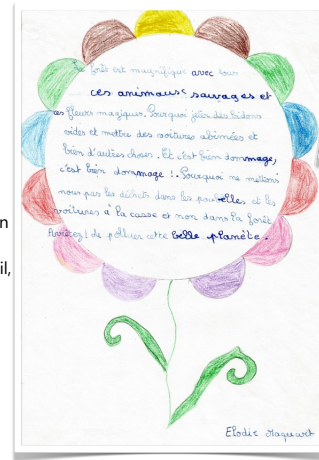 La forêt est magnifique avec tous
ces animause sauvages et
ces fleurs magiques. Pourquoi jeter des bidons
vides et mettre des voitures abimées et
bien d'autres choses. Et c'est bien dommage,
c'est bien dommage !. Pourquoi ne mettons
nous pas les déchets dans les poubelles et les
voitures à la casse et non dans la forêt
Arrêtez ! de polluer cette belle planète.
Elodie Maquart
n
il,